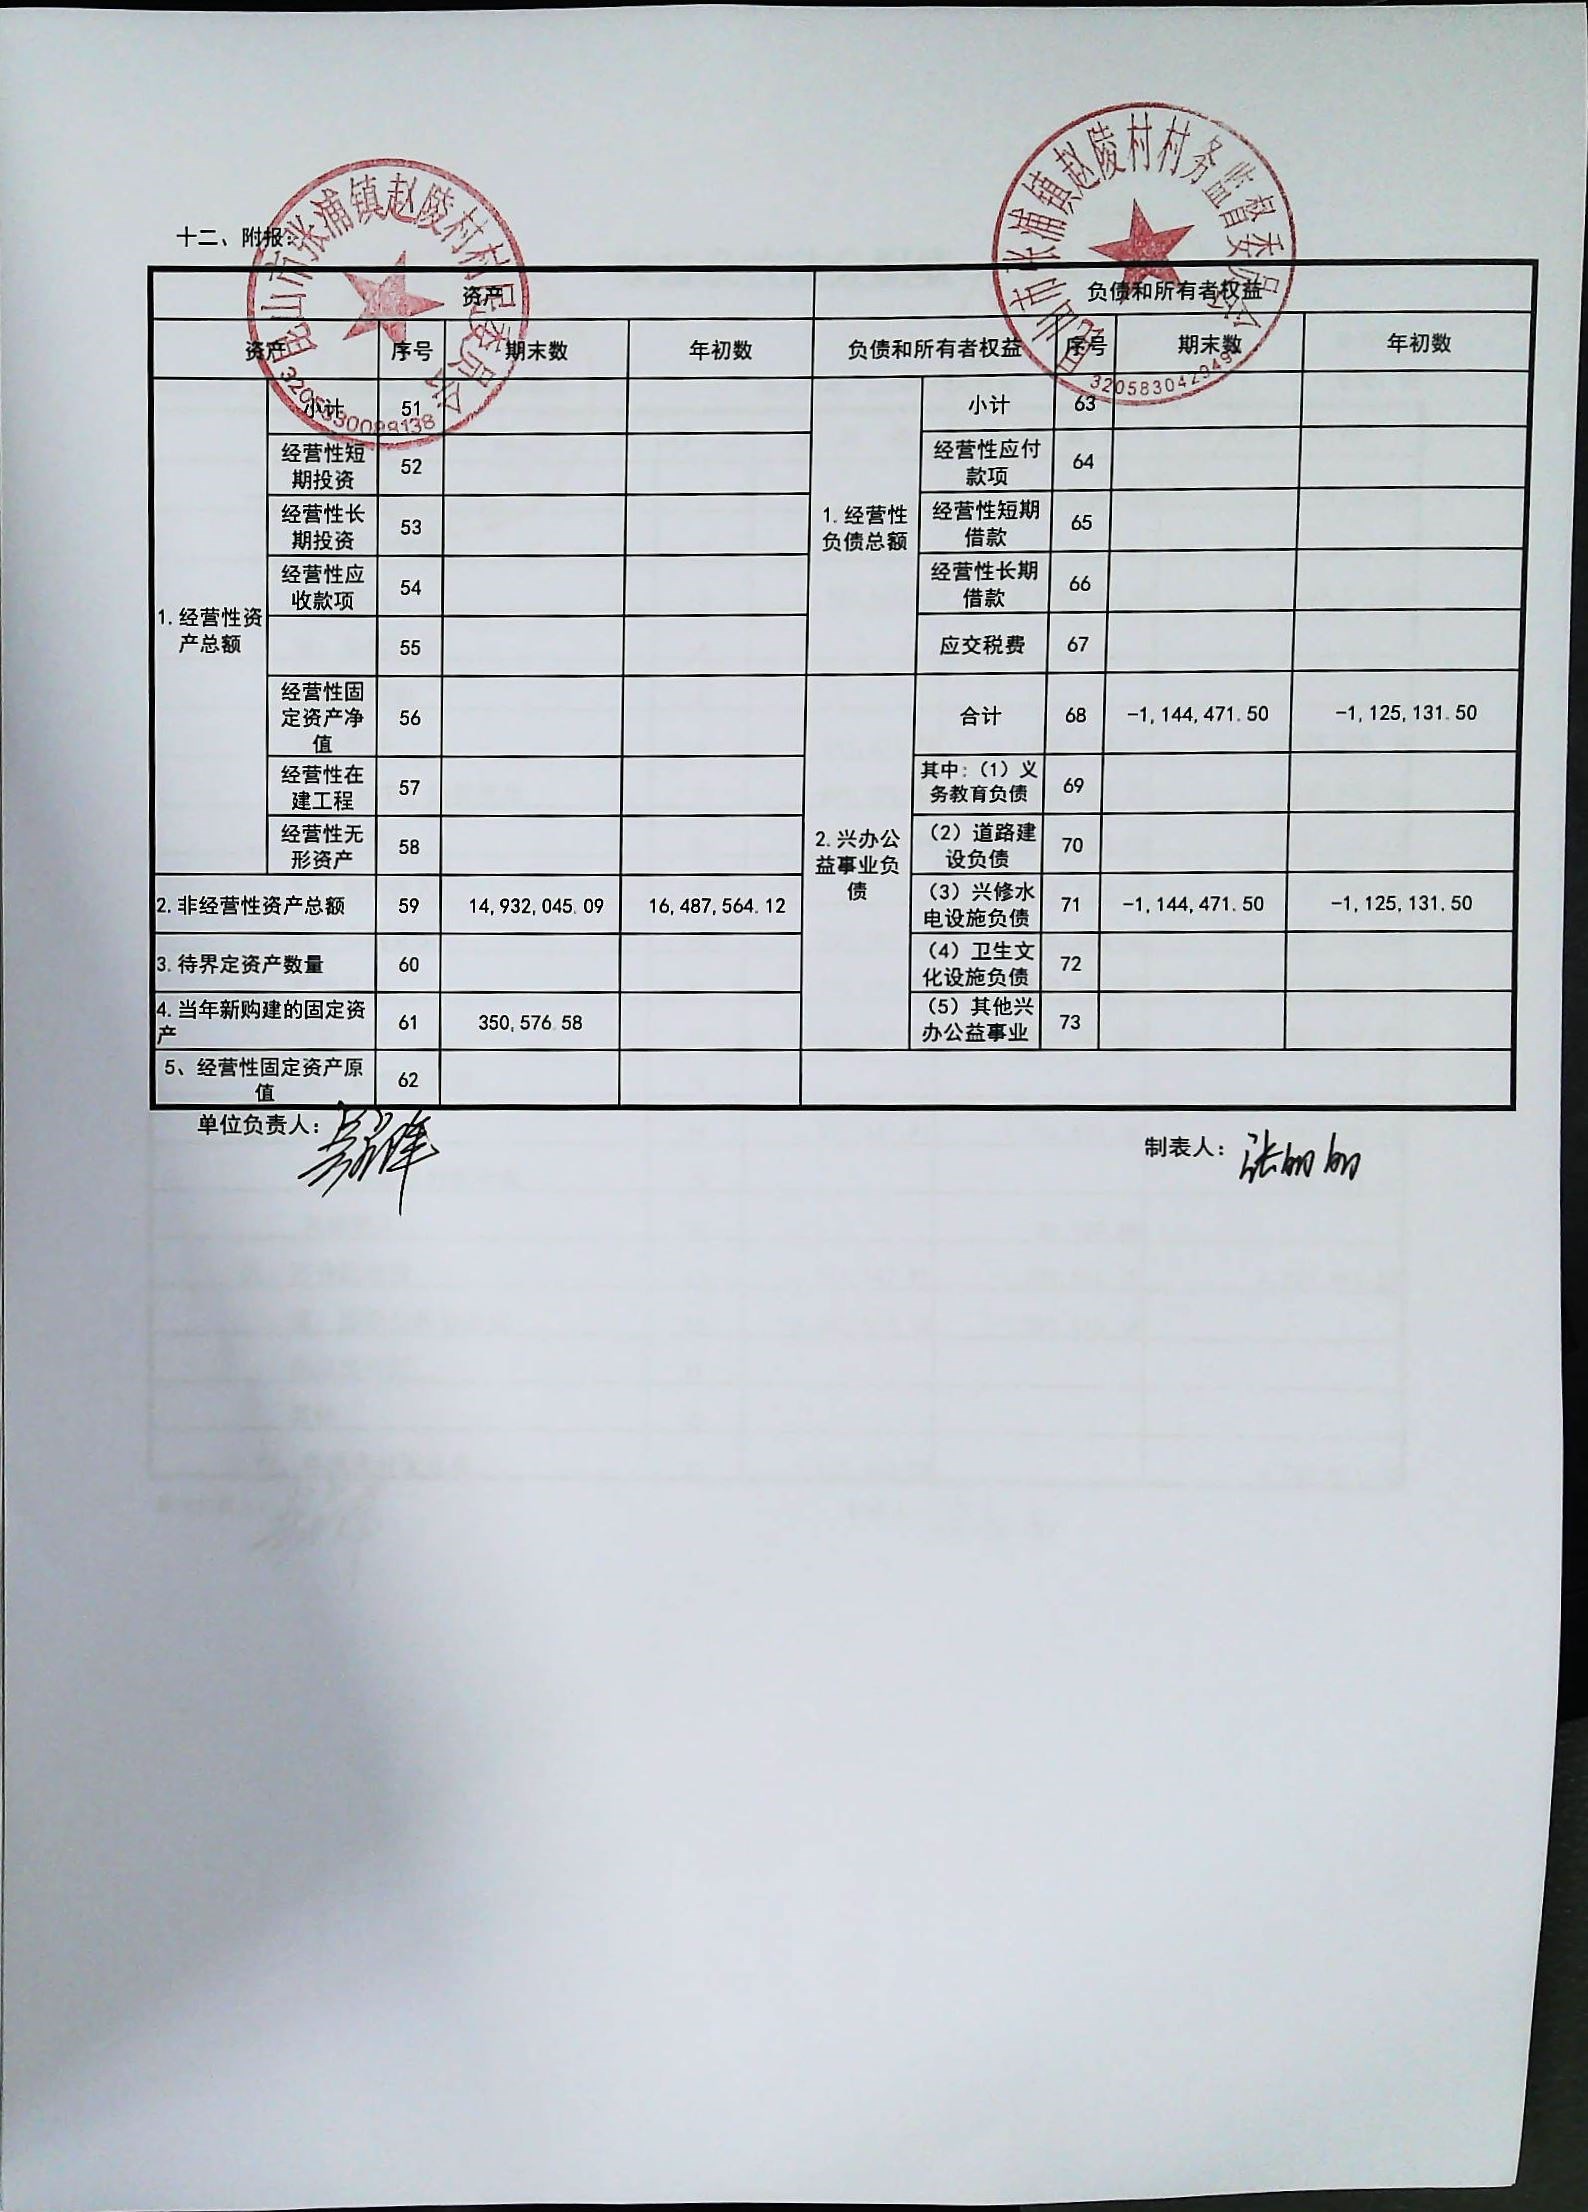 昆山市张浦镇赵陵村村民委员会
昆山市张浦镇赵陵村村务监督委员会
十二、附报:
资产 负债和所有者权益
资产 序号 期末数 年初数 负债和所有者权益 序号 期末数 年初数
1.经营性资产总额 小计 51 1.经营性负债总额 小计 63
经营性短期投资 52 经营性应付款项 64
经营性长期投资 53 经营性短期借款 65
经营性应收款项 54 经营性长期借款 66
55 应交税费 67
经营性固定资产净值 56 2.兴办公益事业负债 合计 68 -1,144,471.50 -1,125,131.50
经营性在建工程 57 其中:（1）义务教育负债 69
经营性无形资产 58 （2）道路建设负债 70
2.非经营性资产总额 59 14,932,045.09 16,487,564.12 （3）兴修水电设施负债 71 -1,144,471.50 -1,125,131.50
3.待界定资产数量 60 （4）卫生文化设施负债 72
4.当年新购建的固定资产 61 350,576.58 （5）其他兴办公益事业 73
5、经营性固定资产原值 62
单位负责人: 制表人: